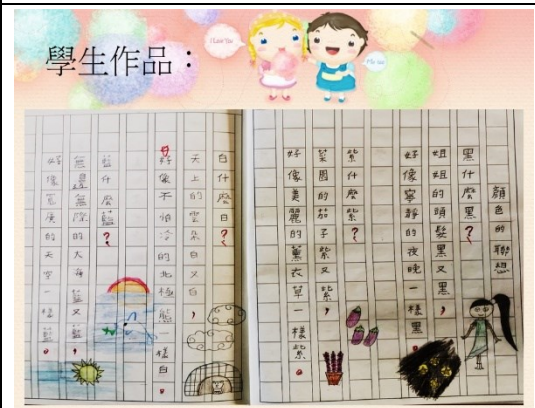 學生作品：
I Love You
顏色的聯想
黑什麼黑？
姐姐的頭髮黑又黑，
好像寧靜的夜晚一樣黑。
紫什麼紫？
菜園的茄子紫又紫，
好像美麗的薰衣草一樣紫。
白什麼白？
天上的雲朵白又白，
好像不怕冷的北極熊一樣白。
藍什麼藍？
無邊無際的大海藍又藍，
好像的天空一樣藍。